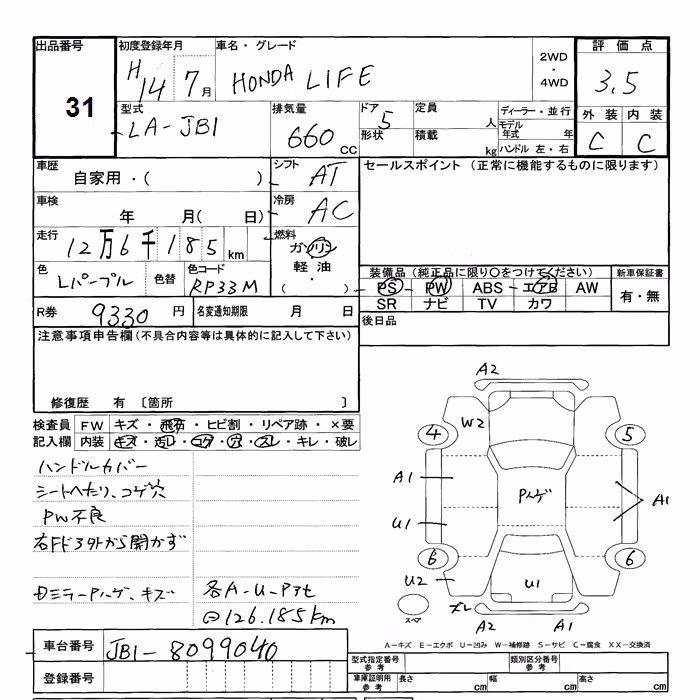 出品番号 初度登録年月 車名・グレード 評価点
31 H14 7月 HONDA LIFE 2WD・4WD 3.5
型式 排気量 ドア 定員 ディーラー・並行 外装 内装
LA-JB1 660CC 5 人 モデル年式 年 C C
形状 積載 kg ハンドル 左・右
車歴 シフト セールスポイント (正常に機能するものに限ります)
自家用・( ) AT
車検 冷房
年 月( 日) AC
走行 燃料
12万6千185km ガソリン
軽油
・
( )
色 色替 色コード 装備品 (純正品に限り○をつけてください) 新車保証書
Lパープル RP33M PS PW ABS エアB AW 有・無
SR ナビ TV カワ
R券 9330円 名変通知期限 月 日 後日品
注意事項申告欄 (不具合内容等は具体的に記入して下さい)
修復歴 有 〔箇所 〕
検査員 FW キズ・飛石・ヒビ割・リペア跡・×要
記入欄 内装 キズ・汚レ・コゲ・穴・スレ・キレ・破レ
ハンドルカバー
シートヘたり、コゲ穴
PW不良
右Fドア外から開かず
Dミラーハゲ、キズ 各A-U-Pアセ
@126.185km
A2
W2
4 5
A1 Pハゲ A1
U1
6 6
U2 U1
ズレ
スペア A2 A1
A-キズ E-エクボ U-凹み W-補修跡 S-サビ C-腐食 XX-交換済
車台番号 JB1-8099040
登録番号
型式指定番号 参考 類別区分番号 参考
車庫証明用 参考 長さ cm 幅 cm 高さ cm